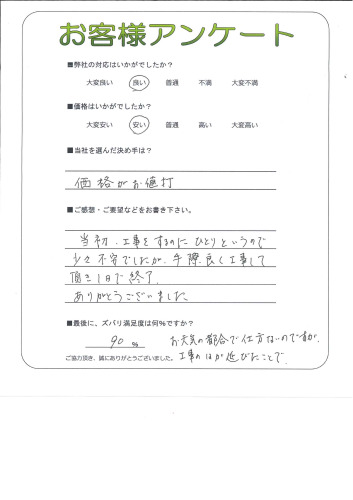 お客様アンケート
■弊社の対応はいかがでしたか?
大変良い 良い 普通 不満 大変不満
■価格はいかがでしたか?
大変安い 安い 普通 高い 大変高い
■当社を選んだ決め手は?
価格がお値打
■ご感想・ご要望などをお書き下さい。
当初、工事をするのにひとりというので
少々不安でしたが、手際良く工事して
頂き1日で終了。
ありがとうございました
■最後に、ズバリ満足度は何%ですか?
90 %
お天気の都合で仕方ないのですが、
工事のほか延びたことで。
ご協力頂き、誠にありがとうございました。